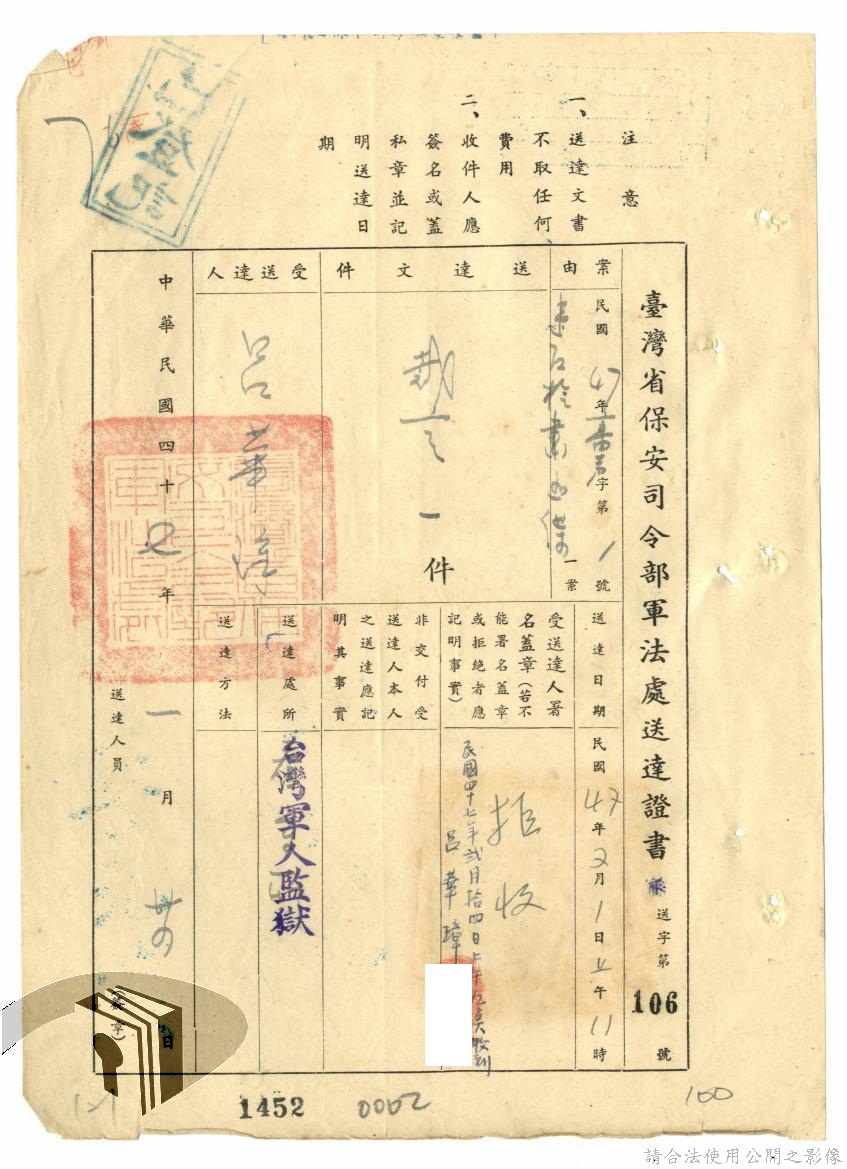 注意
一、送達文書
不取任何
費用
二、收件人應
簽名或蓋
私章並記
明送達日
期
臺灣省保安司令部軍法處送達證書 送字第106號
案由
民國47年 字第1號
一案
送達文件
裁定一件
受送達人
呂華璋
送達日期
民國47年2月1日 午11時
受送達人署
名蓋章(若不
能署名蓋章
或拒絕者應
記明事實)
拒收
民國四十七年貳月拾四日上午九點收到
呂華璋
非交付受
送達人本人
之送達應記
明其事實
送達處所
台灣軍人監獄
送達方法
中華民國四十七年一月 日
送達人員 (簽章)
1452
0002
100
121
請合法使用公開之影像